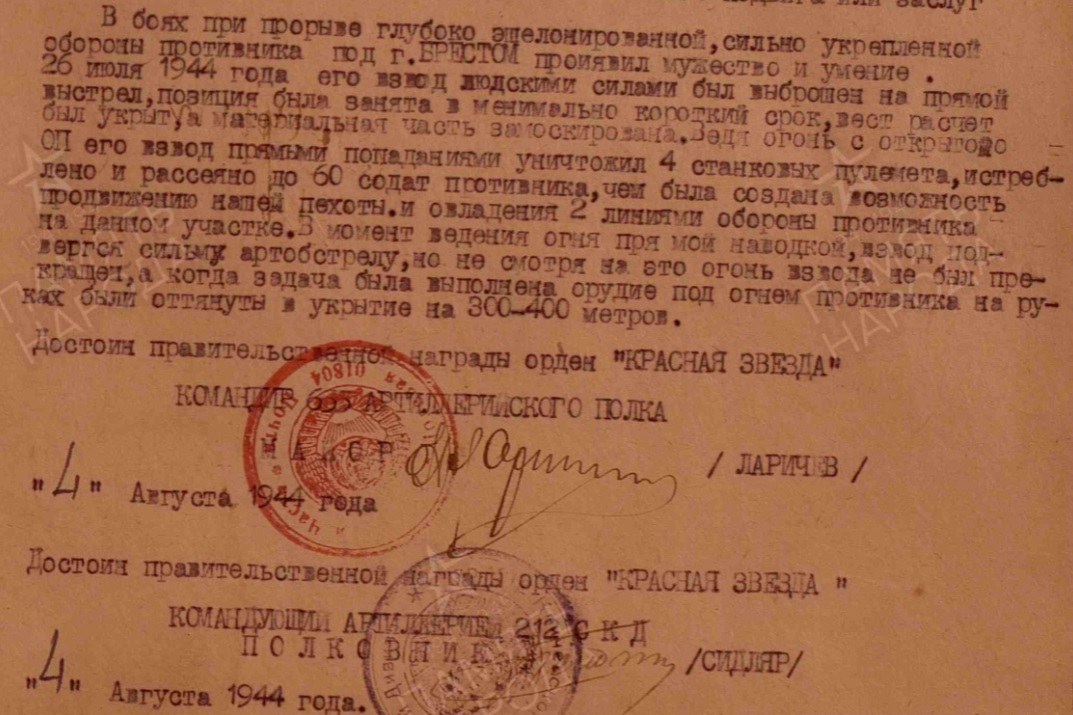 подвига или заслуг
В боях при прорыве глубоко эшелонированной,сильно укрепленной
обороны противника под г.БРЕСТОМ проиявил мужество и умение .
26 июля 1944 года его взвод людскими силами был выброшен на прямой
выстрел,позиция была занята в менимально короткий срок,вест расчет
был укрыт,а материальная часть замоскирована.Ведя огонь с открытого
ОП его взвод прямыми попаданиями уничтожил 4 станковых пулемета,истреб-
лено и рассеяно до 60 содат противника,чем была создана возможность
продвижению нашей пехоты.и овладения 2 линиями обороны противника
на данном участке.В момент ведения огня пря мой наводкой,взвод под-
вергся сильму артобстрелу,но не смотря на это огонь взвода не был пре-
кращен,а когда задача была выполнена орудие под огнем противника на ру-
ках были оттянуты в укрытие на 300-400 метров.
Достоин правительственной награды орден "КРАСНАЯ ЗВЕЗДА"
КОМАНДИР 655 АРТИЛЛЕРИЙСКОГО ПОЛКА
/ ЛАРИЧЕВ /
"4" Августа 1944 года
Достоин правительственной награды орден "КРАСНАЯ ЗВЕЗДА "
КОМАНДУЮЩИЙ АРТИЛЛЕРИЕЙ 212 С К Д
ПОЛКОВНИК /СИДЛЯР/
"4" Августа 1944 года.